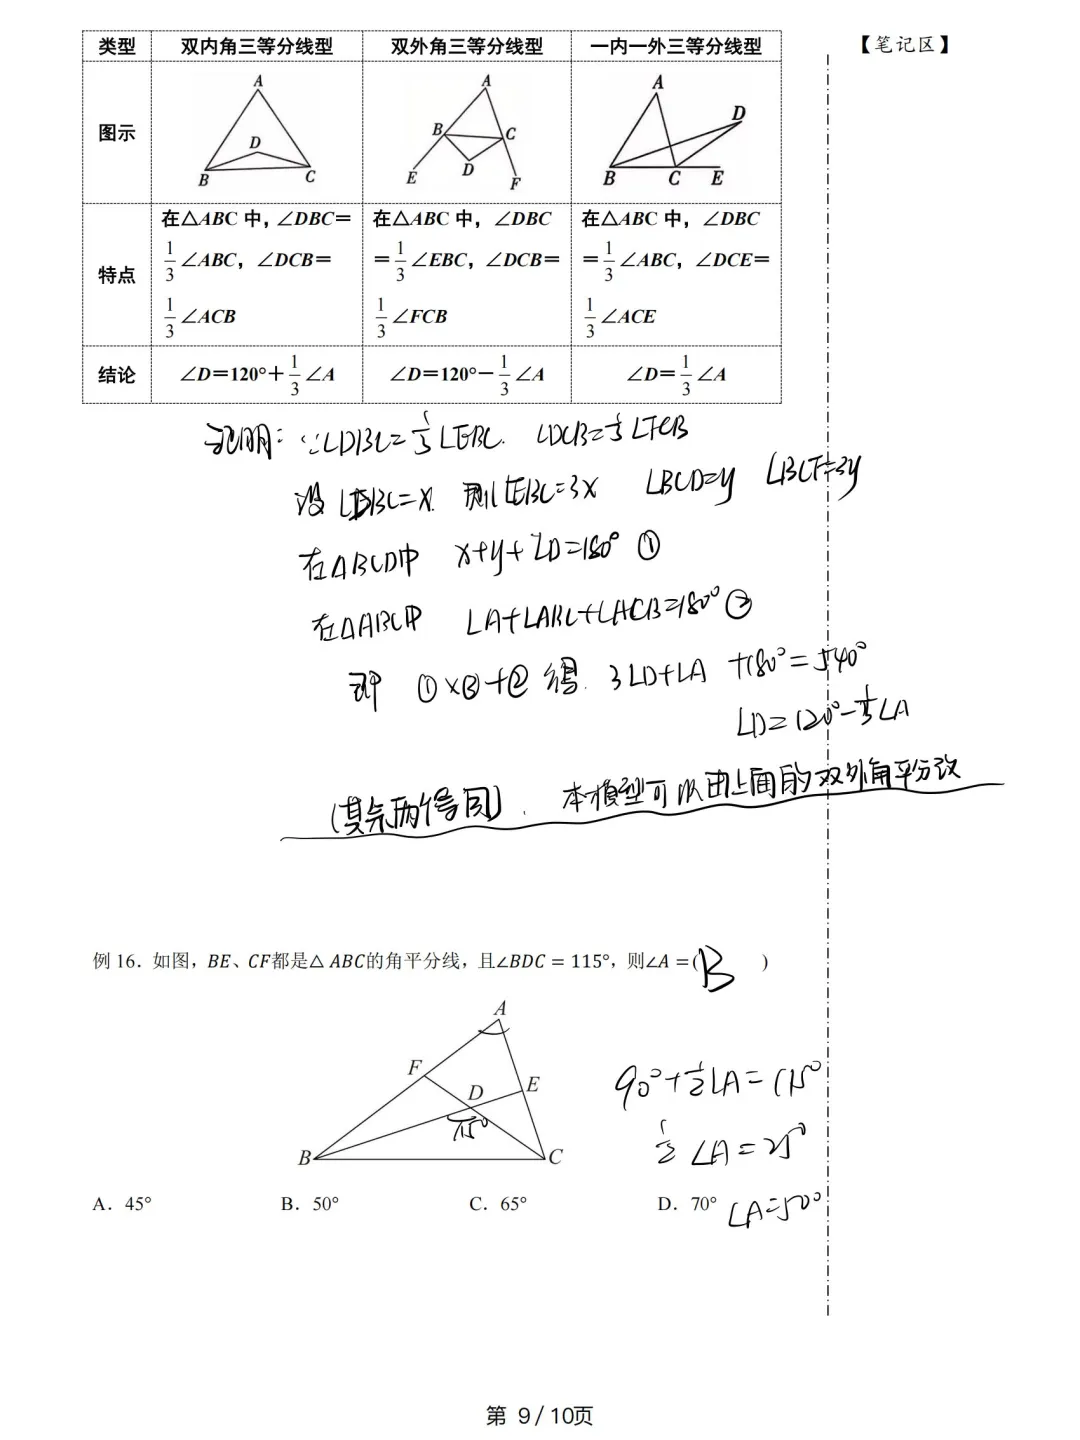 类型 双内角三等分线型 双外角三等分线型 一内一外三等分线型 【笔记区】
图示
A D B C
A B C D E F
A D B C E
特点
在△ABC 中,∠DBC=1/3∠ABC,∠DCB=1/3∠ACB
在△ABC 中,∠DBC=1/3∠EBC,∠DCB=1/3∠FCB
在△ABC 中,∠DBC=1/3∠ABC,∠DCE=1/3∠ACE
结论 ∠D=120°+1/3∠A ∠D=120°-1/3∠A ∠D=1/3∠A
证明:∵∠DBC=1/3∠EBC. ∠DCB=1/3∠FCB
设∠DBC=x. 则∠EBC=3x ∠BCD=y ∠BCF=3y
在△BCD中 x+y+∠D=180° ①
在△ABC中 ∠A+∠ABC+∠ACB=180° ②
即 ①×3+② 得. 3∠D+∠A +180°=540°
∠D=120°-1/3∠A
(其余两个同). 本模型可以由上面的双外角平分改
例 16.如图,BE、CF都是△ ABC的角平分线,且∠BDC = 115°,则∠A =( B )
A
F D E
115°
B C
90°+1/2∠A=115°
1/2∠A=25°
∠A=50°
A.45° B.50° C.65° D.70°
第 9 / 10页